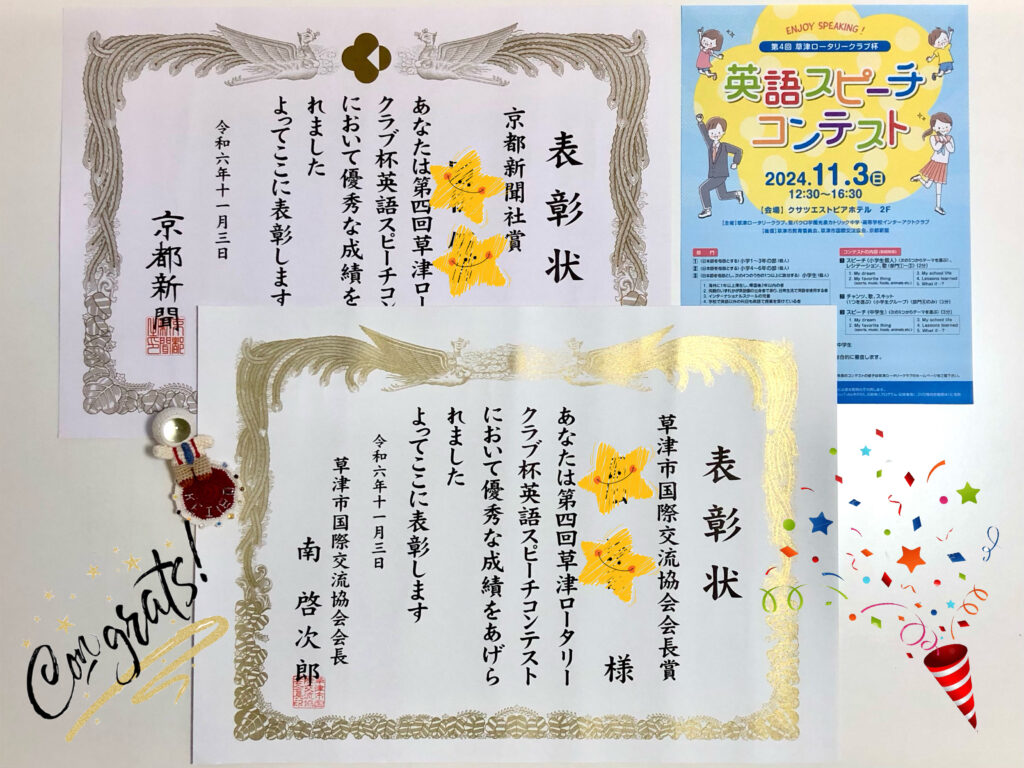 表彰状
京都新聞社賞
あなたは第四回草津ロー
クラブ杯英語スピーチコン
において優秀な成績を
れました
よってここに表彰します
令和六年十一月三日
京都新聞
ENJOY SPEAKING!
第4回 草津ロータリークラブ杯
英語スピーチ
コンテスト
2024.11.3(日)
12:30~16:30
【会場】クサツエストピアホテル 2F
部門
コンテストの内容
1. My dream
2. My favorite thing
(sports, music, foods, animals etc.)
3. My school life
4. Lessons learned
5. What if - ?
1. My dream
2. My favorite thing
(sports, music, foods, animals etc.)
3. My school life
4. Lessons learned
5. What if - ?
表彰状
草津市国際交流協会会長賞
様
あなたは第四回草津ロータリー
クラブ杯英語スピーチコンテスト
において優秀な成績をあげら
れました
よってここに表彰します
令和六年十一月三日
草津市国際交流協会会長
南 啓次郎
Congrats!